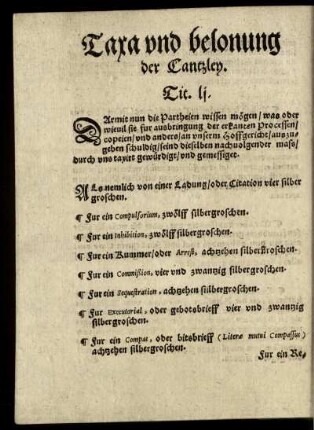 Taxa vnd belonung
der Cantzley.
Tit. lj.
DArmit nun die Partheien wissen mögen/ was oder
wieuil sie fur ausbringung der erkanten Processen/
copeien/ vnd anders/ an vnserm Hoffgericht/ auszu-
geben schuldig/ seind dieselben nachuolgender mass/
durch vns taxirt gewürdigt/ vnd gemessiget.
ALs nemlich von einer Ladung/ oder Citation vier silber
groschen.
¶ Fur ein Compulsorium, zwölff silbergroschen.
¶ Fur ein Inhibition, zwölff silbergroschen.
¶ Fur ein Kummer/ oder Arrest, achtzehen silbergroschen.
¶ Fur ein Commission, vier vnd zwantzig silbergroschen.
¶ Fur ein Sequestration, achtzehen silbergroschen.
¶ Fur Executorial, oder gebotsbrieff vier vnd zwantzig
silbergroschen.
¶ Fur ein Compas, oder bitsbrieff (Literæ mutui Compassus)
achtzehen silbergroschen.
Fur ein Re-